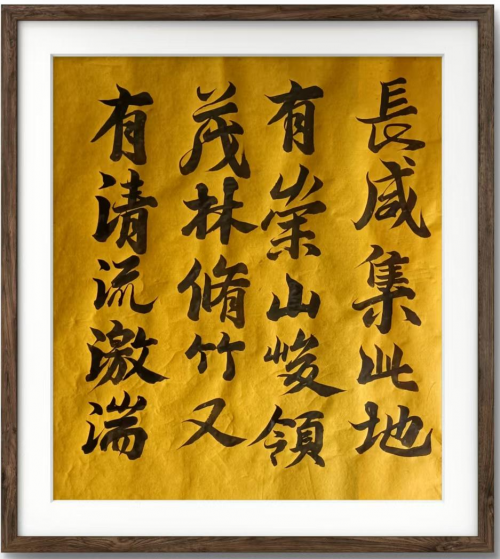 長咸集此地
有崇山峻領
茂林脩竹又
有清流激湍